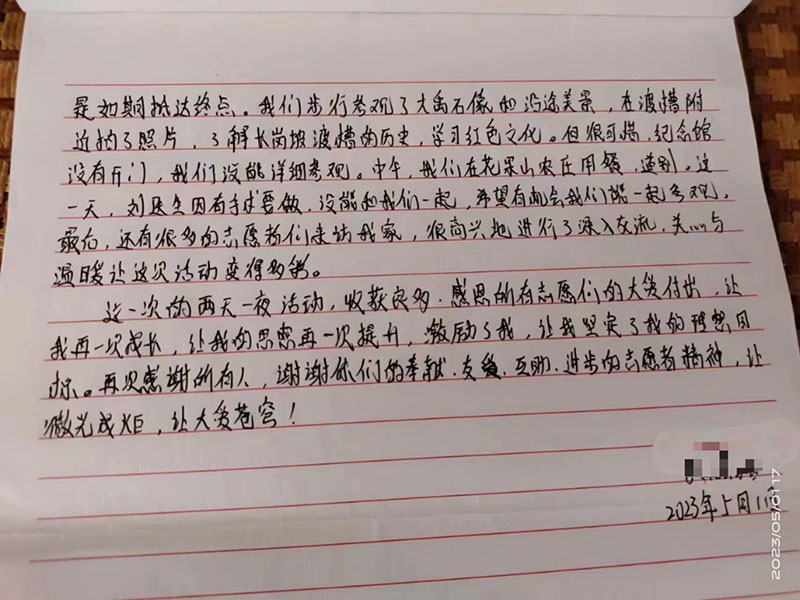 是如期抵达终点。我们步行参观了大禹石像和沿途美景，在渡槽附
近拍了照片，了解长岗坡渡槽的历史，学习红色文化。但很可惜，纪念馆
没有开门，我们没能详细参观。中午，我们在花果山农庄用餐，道别。这
一天，刘医生因有手术要做，没能和我们一起，希望有机会我们能一起参观。
最后，还有很多的志愿者们来访我家，很高兴地进行了深入交流，关心与
温暖让这次活动变得多彩。
这一次的两天一夜活动，收获良多。感恩所有志愿们的大爱付出，让
我再一次成长，让我的思索再一次提升，激励了我，让我坚定了我的理想目
标。再次感谢所有人，谢谢你们的奉献、友爱、互助、进步的志愿者精神，让
微光成炬，让大爱苍穹！
2023年5月1日
2023/05/01 17